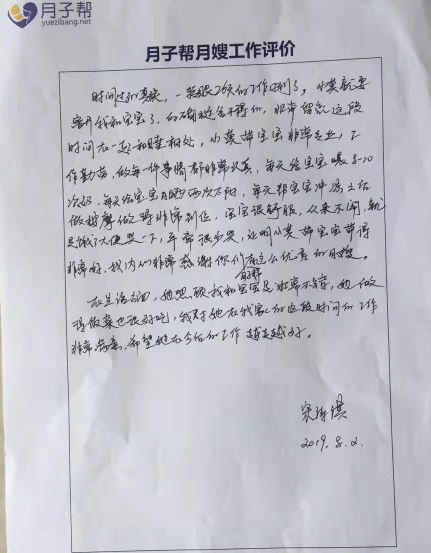 月子帮
yuezibang.net
月子帮月嫂工作评价
时间过的真快，一转眼26天的工作快到了，小龚就要
离开我和宝宝了，的确挺舍不得的，非常留恋这段
时间在一起和睦相处，小龚带宝宝非常专业，工
作勤劳，做每一件事情都非常认真，每天给宝宝喂8-10
次奶，每天给宝宝晒两次太阳，每天帮宝宝冲凉
做按摩做得非常到位，宝宝很舒服，从来不闹，就
是饿了大便哭一下，平常很少哭，证明小龚带宝宝带得
非常好，我内心非常感谢你们月子帮有这么优秀的月嫂。
在生活方面，她照顾我和宝宝是非常不错，她做
得饭菜也很好吃，我对她在我家的这段时间的工作
非常满意，希望她在今后的工作越来越好。
2019.8.2.